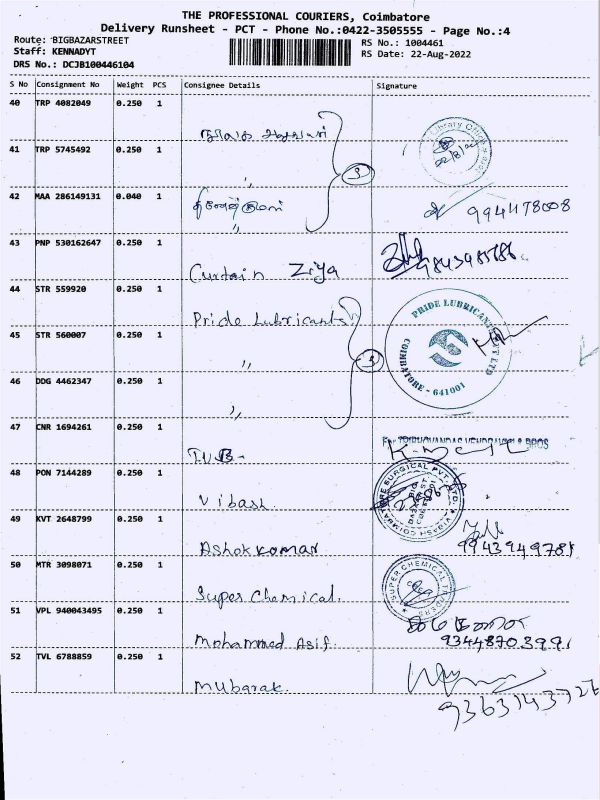 THE PROFESSIONAL COURIERS, Coimbatore
Delivery Runsheet - PCT - Phone No.:0422-3505555 - Page No.:4
Route: BIGBAZARSTREET
RS No.: 1004461
Staff: KENNADYT
RS Date: 22-Aug-2022
DRS No.: DCJB100446104
S No Consignment No Weight PCS Consignee Details Signature
40 TRP 4082049 0.250 1
Library Office
41 TRP 5745492 0.250 1
"
3
22/8/22
42 MAA 286149131 0.040 1
"
9941178008
43 PNP 530162647 0.250 1
Curtain Ziya
44 STR 559920 0.250 1
Pride Lubricants
PRIDE LUBRICANTS PVT LTD
COIMBATORE - 641001
45 STR 560007 0.250 1
"
3
46 DDG 4462347 0.250 1
"
47 CNR 1694261 0.250 1
For TRIBHOVANDAS & BROS
48 PON 7144289 0.250 1
Vibash
VIBASH COIMBATORE SURGICAL PVT. LTD.
49 KVT 2648799 0.250 1
Ashok kumar
9943949781
50 MTR 3098071 0.250 1
Super Chemical.
SUPER CHEMICAL TRADERS
51 VPL 940043495 0.250 1
Mohammed Asif.
9344870399
52 TVL 6788859 0.250 1
Mubarak.
9363143726